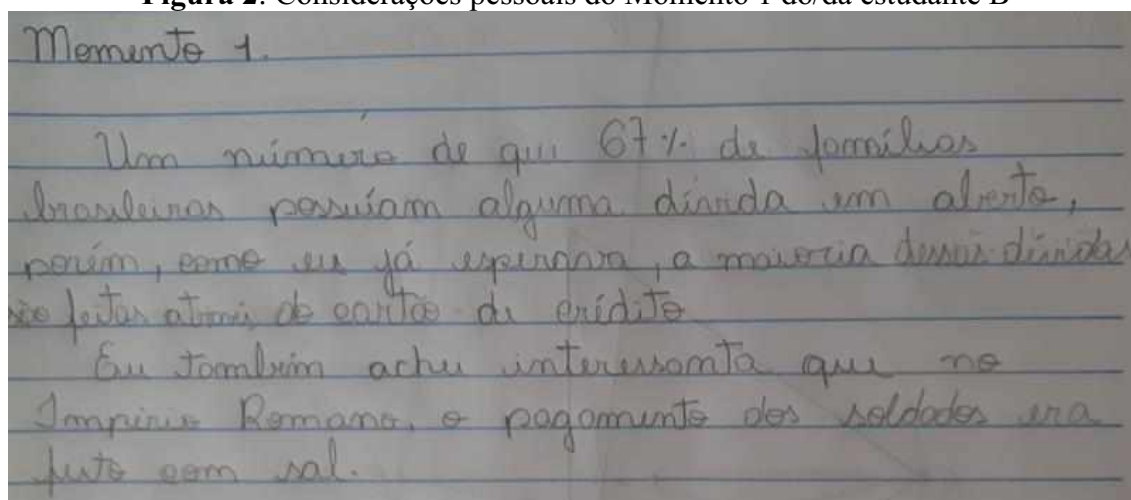 Figura 2: Considerações pessoais do Momento 1 do/da estudante B
Momento 1.
Um número de que 67% de famílias
brasileiras possuíam alguma dívida em aberto,
porém, como eu já esperava, a maioria dessas dívidas
são feitas através de cartão de crédito
Eu também achei interessante que no
Império Romano, o pagamento dos soldados era
feito com sal.